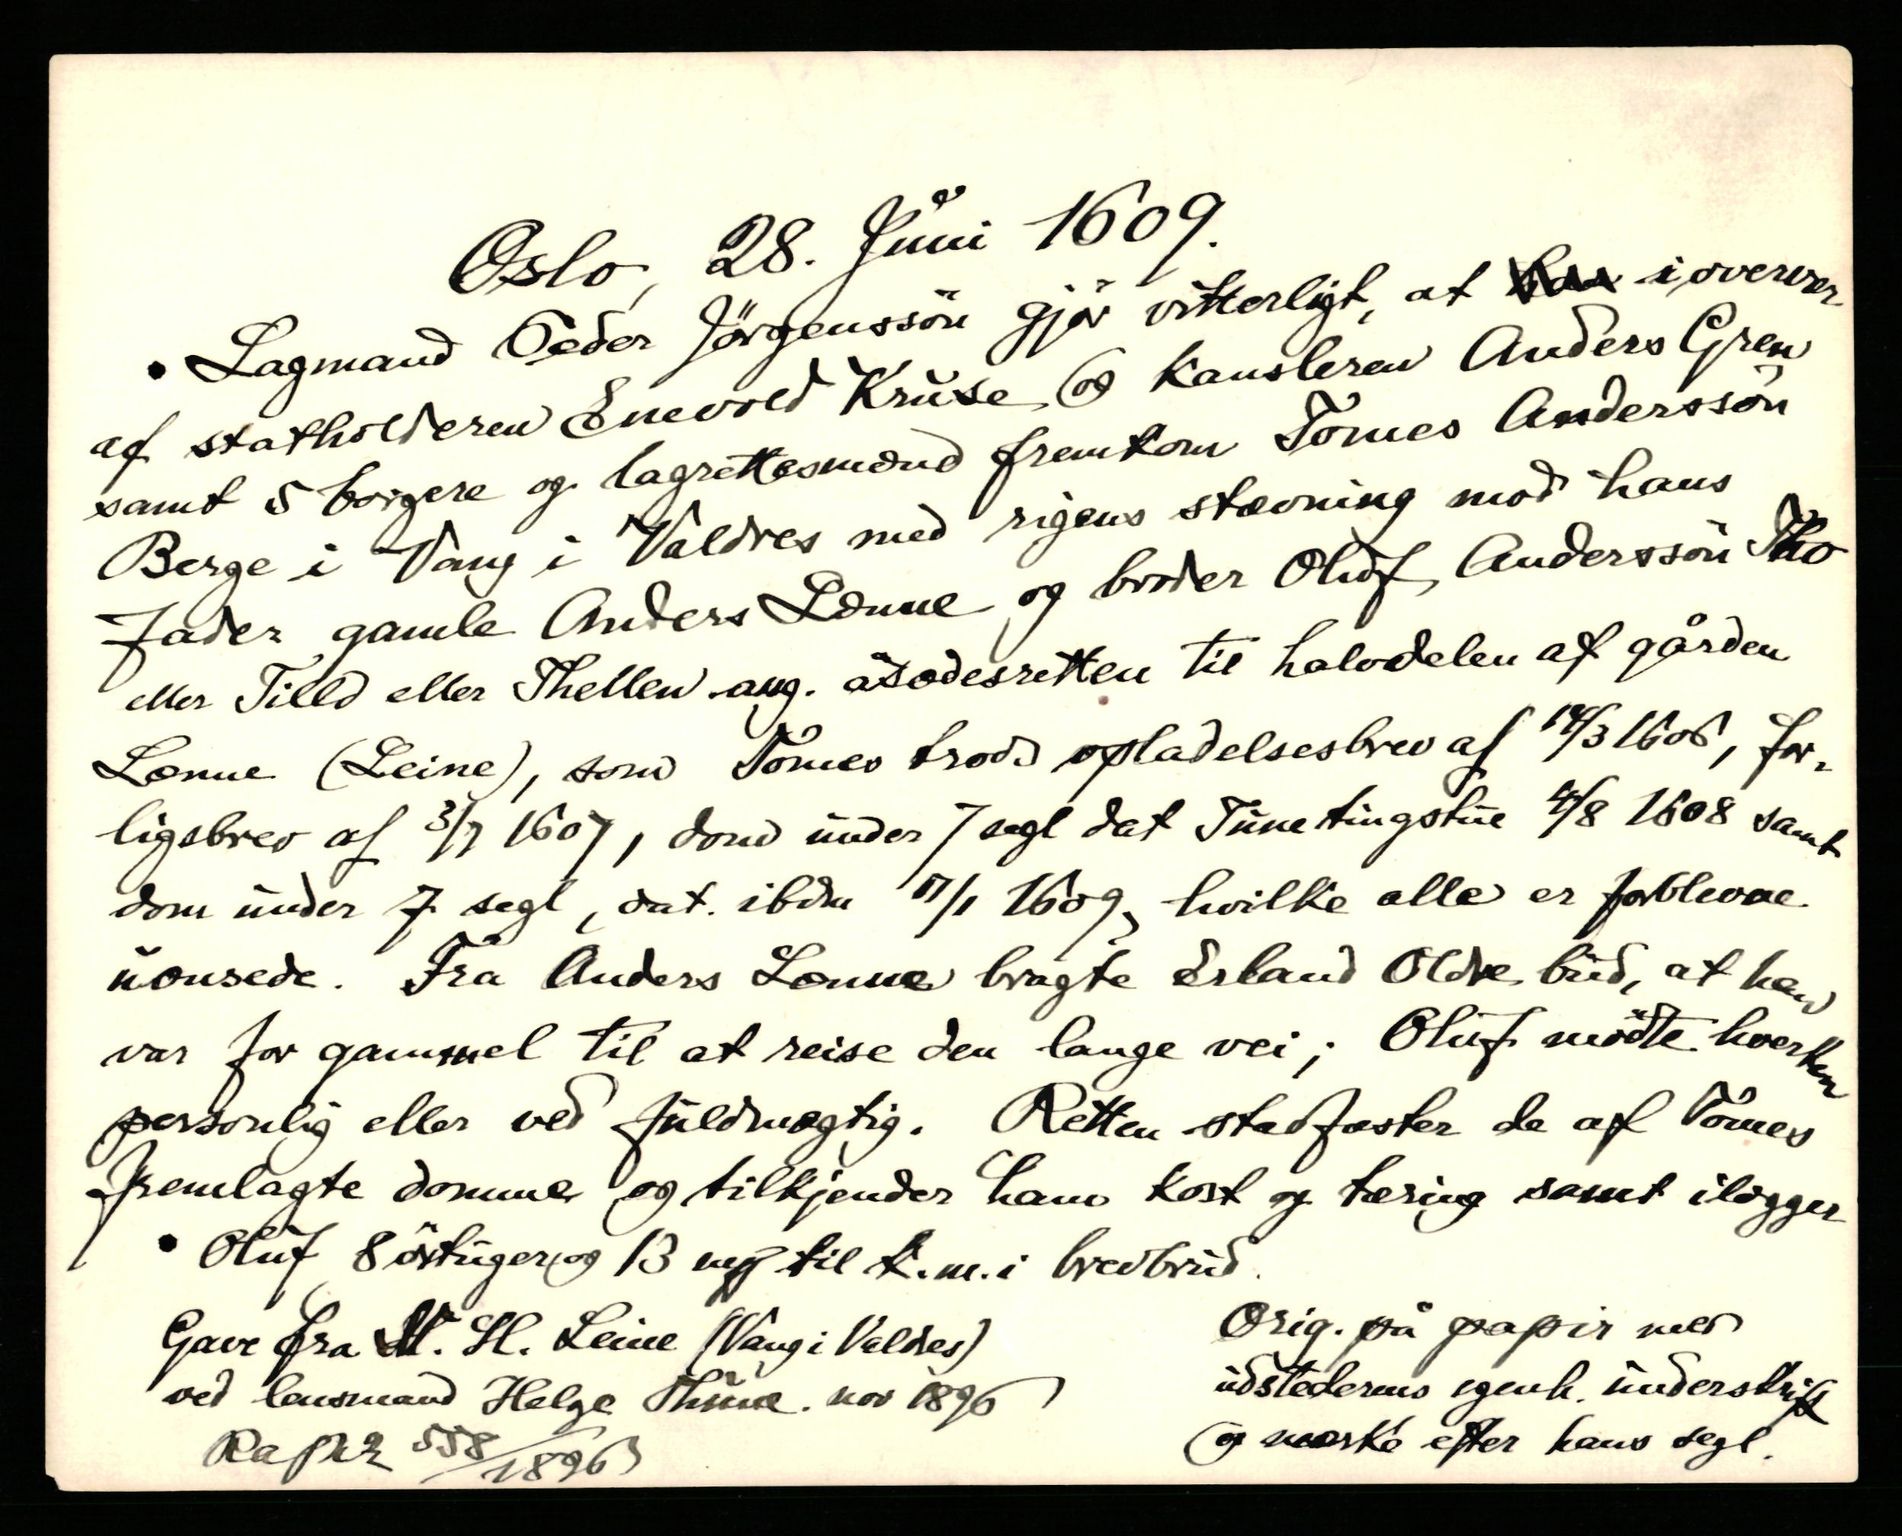 Oslo, 28. Juni 1609.
Lagmand Peder Jörgenssön gjör vitterligt, at i overvær
af statholderen Enevold Kruse og kansleren Anders Gren
samt 5 borgere og lagrettesmænd fremkom Tomes Anderssön
Berge i Vang i Valdres med rigens stævning mod hans
fader gamle Anders Lænne og broder Oluf Anderssön Tho
eller Tilld eller Thellen ang. åsædesretten til halvdelen af gården
Lænne (Leine), som Tomes trods opladelsesbrev af 14/3 1606, for-
ligsbrev af 3/7 1607, dom under 7 segl dat Tune tingstue 4/8 1608 samt
dom under 7 segl, dat. ibdm 17/1 1609, hvilke alle er forblevne
uænsede. Fra Anders Lænne bragte Erland Oldre bud, at han
var for gammel til at reise den lange vei; Oluf mödte hverken
personlig eller ved fuldmægtig. Retten stadfæster de af Tomes
fremlagte domme og tilkjender ham kost og tæring samt ilægger
Oluf 8 örtuger og 13 mk til k. m. i brevbrud.
Gave fra M. H. Leine (Vang i Valdres)
ved lensmand Helge Thune. nov 1896
Ra pk 2 558/1896
Orig. på papir med
udstederens egenh. underskrift
og mærke efter hans segl.